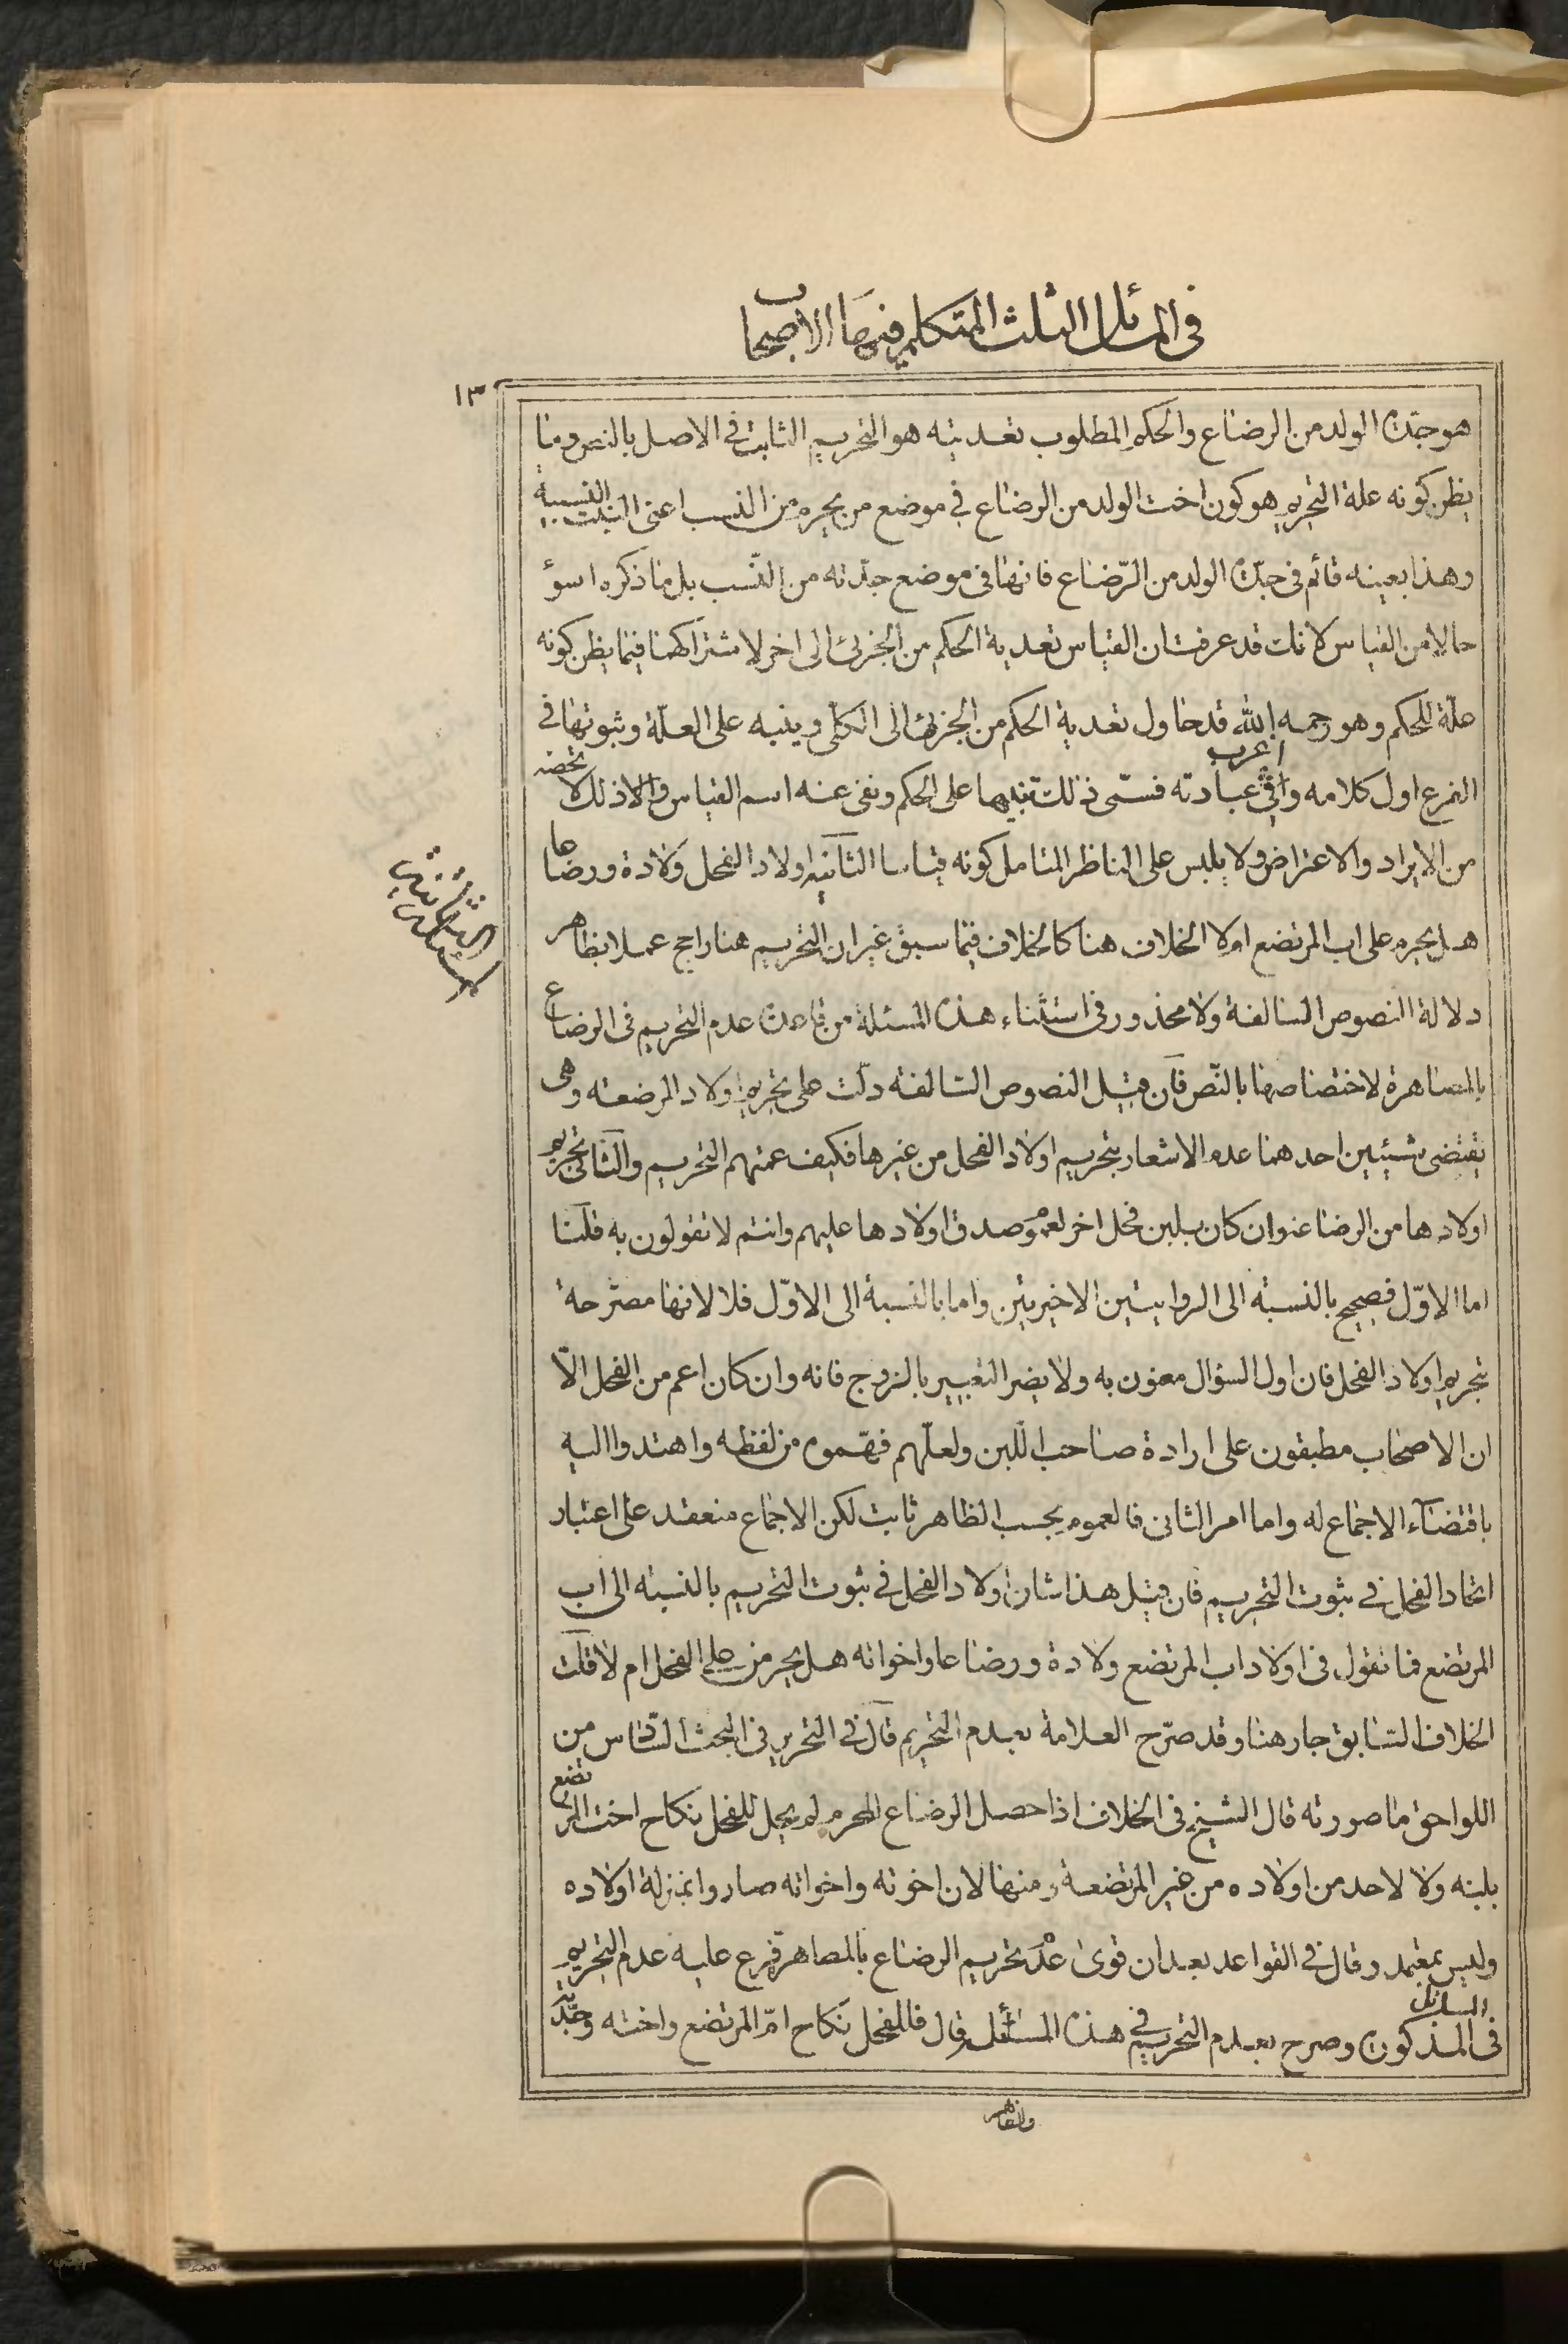 في المسائل الثلث المتكلم فيها الاصحاب
١٣
هو جدة الولد من الرضاع والحكم المطلوب تعديته هو التحريم الثابت في الاصل بالنص وما
يظن كونه علة التحريم هو كون اخت الولد من الرضاع في موضع من يحرم من النسب اعنى البنت النسبية
وهذا بعينه قائم فى جدة الولد من الرّضاع فانها فى موضع جدّته من النّسب بل ما ذكره اسؤ
حالا من القياس لانك قد عرفت ان القياس تعدية الحكم من الجزئى الى اخر لاشتراكهما فيما يظن كونه
علّة للحكم وهو رحمه الله قد حاول تعدية الحكم من الجزئى الى الكلّى وينبه على العلّة وثبوتها في
الفرع اول كلامه واغرب في عبارته فسمّى ذلك تنبيها على الحكم ونفى عنه اسم القياس والا ذلك لا تحصنه
من الايراد والاعتراض ولا يلبس على الناظر المتامل كونه قياسا الثانية اولاد الفحل ولادة ورضاعا
هل يحرم على اب المرتضع اولا الخلاف هنا كالخلاف فيما سبق غير ان التحريم هنا راجح عملا بظاهر
دلالة النصوص السالفة ولا محذور فى استثناء هذه المسئلة من قاعدة عدم التحريم فى الرضاع
بالمصاهرة لاختصاصها بالنّص فآن قيل النصوص السّالفة دلّت على تحريم اولاد المرضعة وهى
تقتضى شيئين احدهما عدم الاشعار بتحريم اولاد الفحل من غيرها فكيف عمتهم التحريم والثانى تحريم
اولادها من الرضاع وان كان بلبن فحل اخر لعموم صدق اولادها عليهم وانتم لا تقولون به قلنا
اما الاوّل فصحيح بالنسبة الى الروايتين الاخيرتين واما بالنسبة الى الاوّل فلا لانها مصرّحة
بتحريم اولاد الفحل فان اول السؤال معنون به ولا يضر التعبير بالزوج فانه وان كان اعم من الفحل الّا
ان الاصحاب مطبقون على ارادة صاحب اللّبن ولعلّهم فهّموه من لفظه واهتدوا اليه
باقتضآء الاجماع له واما امر الثانى فالعموم بحسب الظاهر ثابت لكن الاجماع منعقد على اعتبار
اتحاد الفحل في ثبوت التحريم فان قيل هذا شان اولاد الفحل في ثبوت التحريم بالنسبة الى اب
المرتضع فما تقول فى اولاد اب المرتضع ولادة ورضاعا واخواته هل يحر من على الفحل ام لا قلت
الخلاف السّابق جار هنا وقد صرّح العلامة بعدم التحريم قآل في التحرير فى البحث السّادس من
اللواحق ما صورته قال الشيخ فى الخلاف اذا حصل الرضاع المحرم لم يحل للفحل نكاح اخت المرتضع
بلبنه ولا لاحد من اولاده من غير المرتضعة ومنها لان اخوته واخواته صاروا بمنزلة اولاده
وليس بمعتمد وقال في القواعد بعد ان قوىٰ عدم تحريم الرضاع بالمصاهرة فرع عليه عدم التحريم
فى المسائل المذكورة وصرح بعدم التحريم في هذه المسئلة وقال فللفحل نكاح امّ المرتضع واخته وجدّته